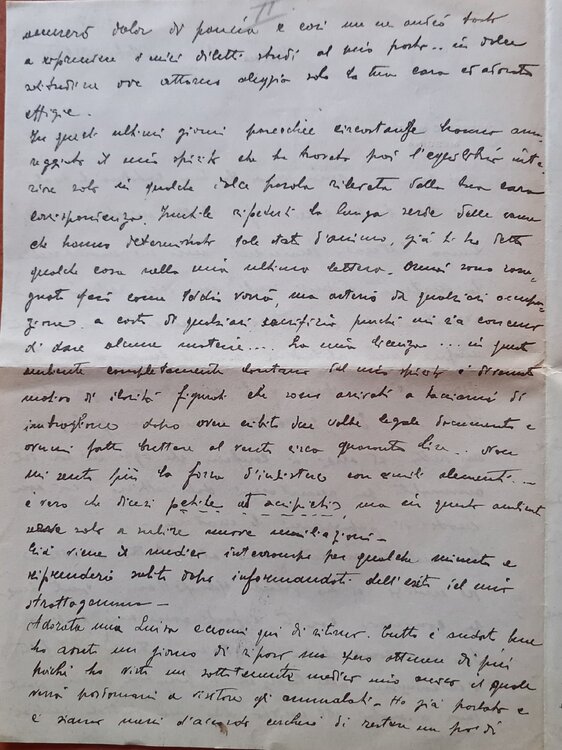 II
accuserò dolor di pancia e così me ne andrò
a riprendere i miei diletti studi al mio posto.. in dolce
solitudine ove attorno aleggia solo la tua cara ed adorata
effigie.
In questi ultimi giorni parecchie circostanze hanno ama-
reggiato il mio spirito che ha trovato poi l'equilibrio inte-
riore solo in qualche dolce parola rilevata dalla tua cara
corrispondenza. Inutile ripeterti la lunga serie delle cause
che hanno determinato tale stato d'animo, già ti ho detto
qualche cosa nella mia ultima lettera. Ormai sono rasse-
gnato farò come Iddio vorrà, ma asterrò da qualsiasi occupa-
zione a costo di qualsiasi sacrifizio purché mi sia concesso
di dare alcune materie.... La mia licenza... in questo
ambiente completamente lontano dal mio spirito è divenuta
motivo di ilarità figurati che sono arrivati a tacciarmi di
imbroglione dopo avere esibito due volte legale documento e
avermi fatto buttare al vento circa quaranta lire.. Non
mi sento più la forza d'insistere con simili elementi...
è vero che dicesi petite et accipietis ma in questo ambiente
solo a subire nuove umiliazioni-
Già viene il medico interrompo per qualche minuto e
riprenderò subito dopo informandoti dell'esito del mio
strattagemma-
Adorata mia Luisa eccomi qui di ritorno. Tutto è andato bene
ho avuto un giorno di riposo ma spero ottenere di più
poiché ho visto un sottotenente medico mio amico il quale
verrà posdomani a visitare gli ammalati- Ho già parlato e
ci siamo messi d'accordo cercherò di restare un po' di